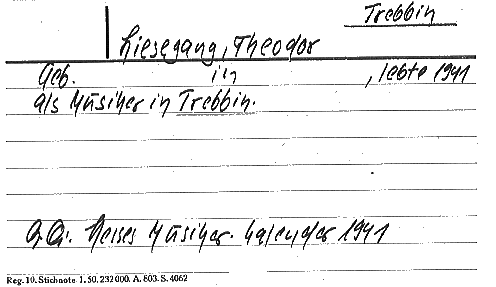 Trebbin
Liesegang, Theodor
Geb. in , lebte 1941
als Musiker in Trebbin.
Hesses Musiker-Kalender 1941
Reg. 10. Stichnote 1. 50. 232000. A. 803. S. 4062